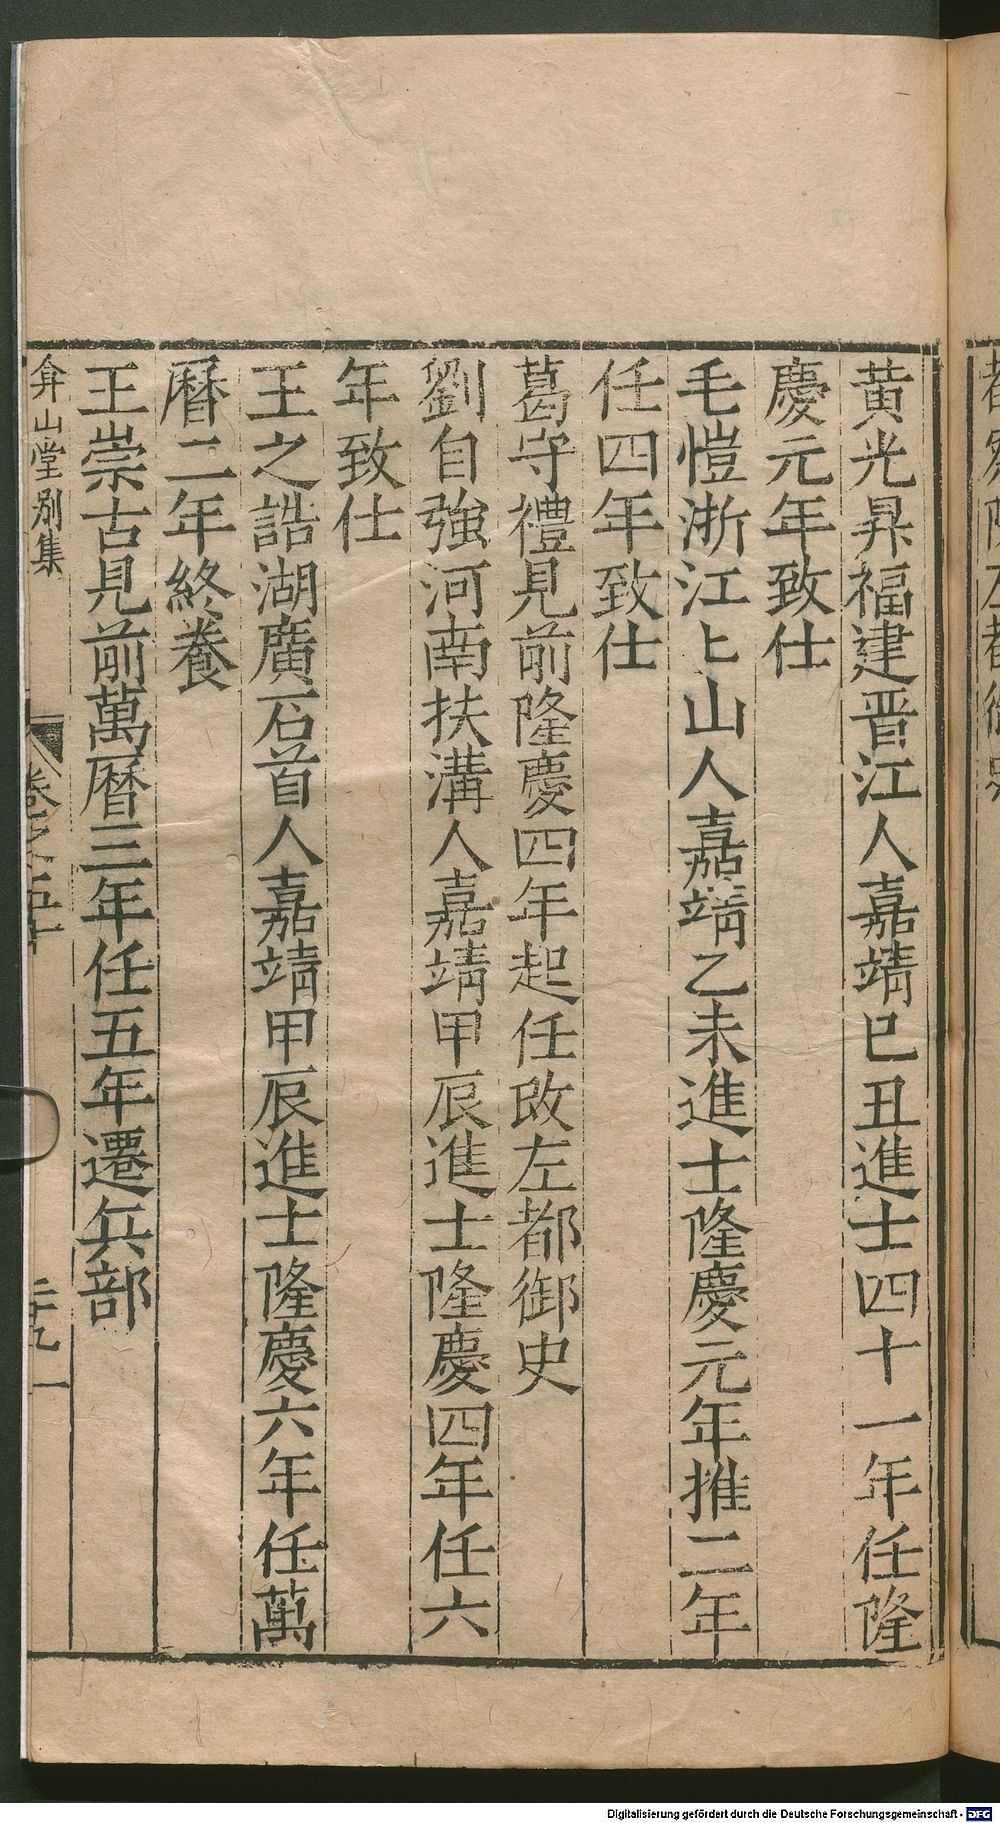 黄光昇福建晋江人嘉靖巳丑進士四十一年任隆
慶元年致仕
毛愷浙江上山人嘉靖乙未進士隆慶元年推二年
任四年致仕
葛守禮見前隆慶四年起任改左都御史
劉自強河南扶溝人嘉靖甲辰進士隆慶四年任六
年致仕
王之誥湖廣石首人嘉靖甲辰進士隆慶六年任萬
曆二年終養
王崇古見前萬曆三年任五年遷兵部
弇山堂别集
卷之五十
二十九
Digitalisierung gefördert durch die Deutsche Forschungsgemeinschaft - DFG